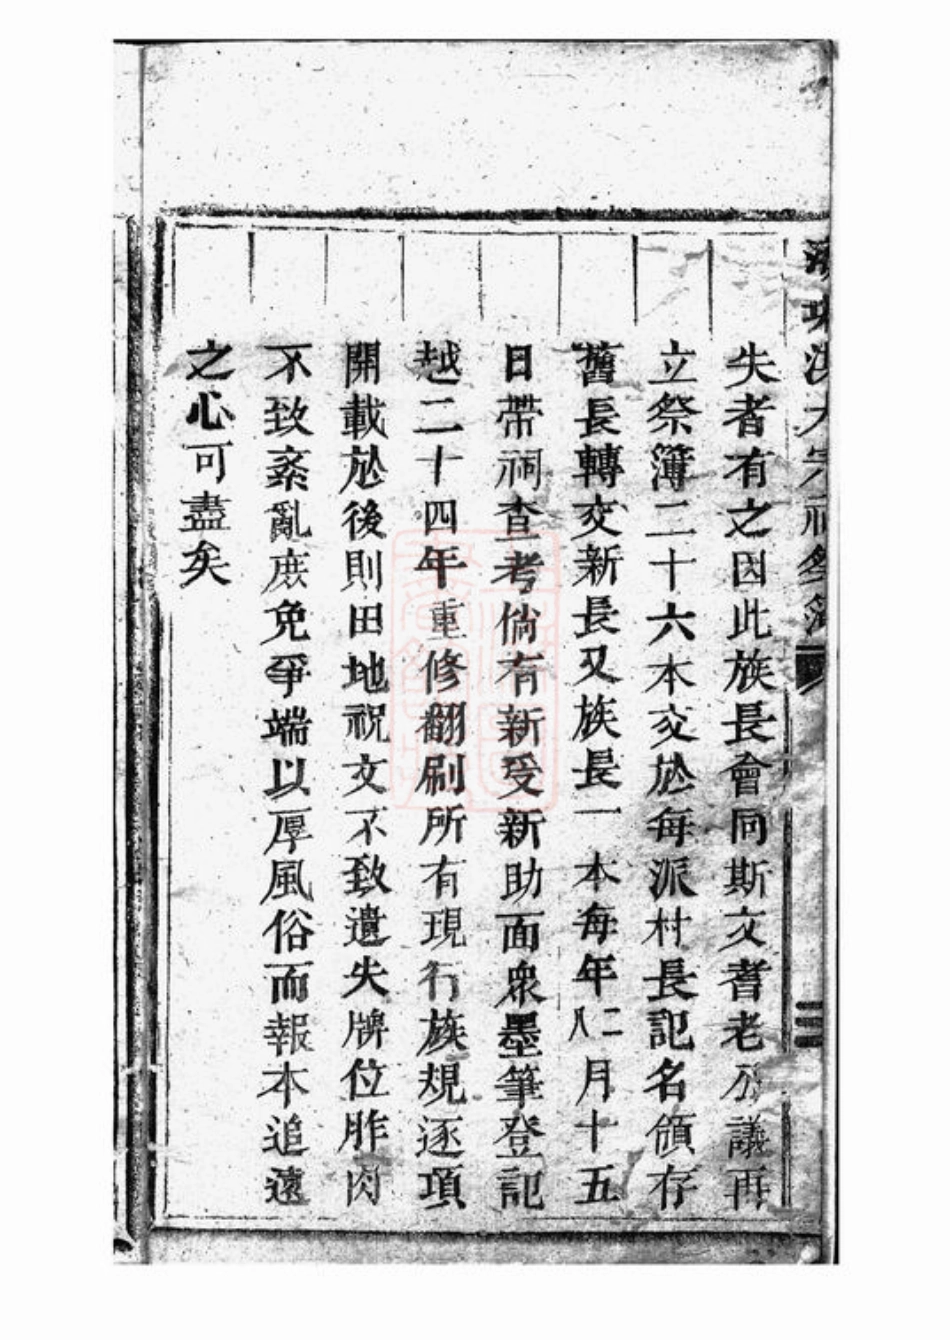 失者有之因此族長會同斯文耆老公議再
立祭簿二十六本交於每派村長記名領存
舊長轉交新長又族長一本每年二八月十五
日帶祠查考倘有新受新助面衆墨筆登記
越二十四年重修翻刷所有現行族規逐項
開載於後則田地祝文不致遺失牌位胙肉
不致紊亂庶免爭端以厚風俗而報本追遠
之心可盡矣